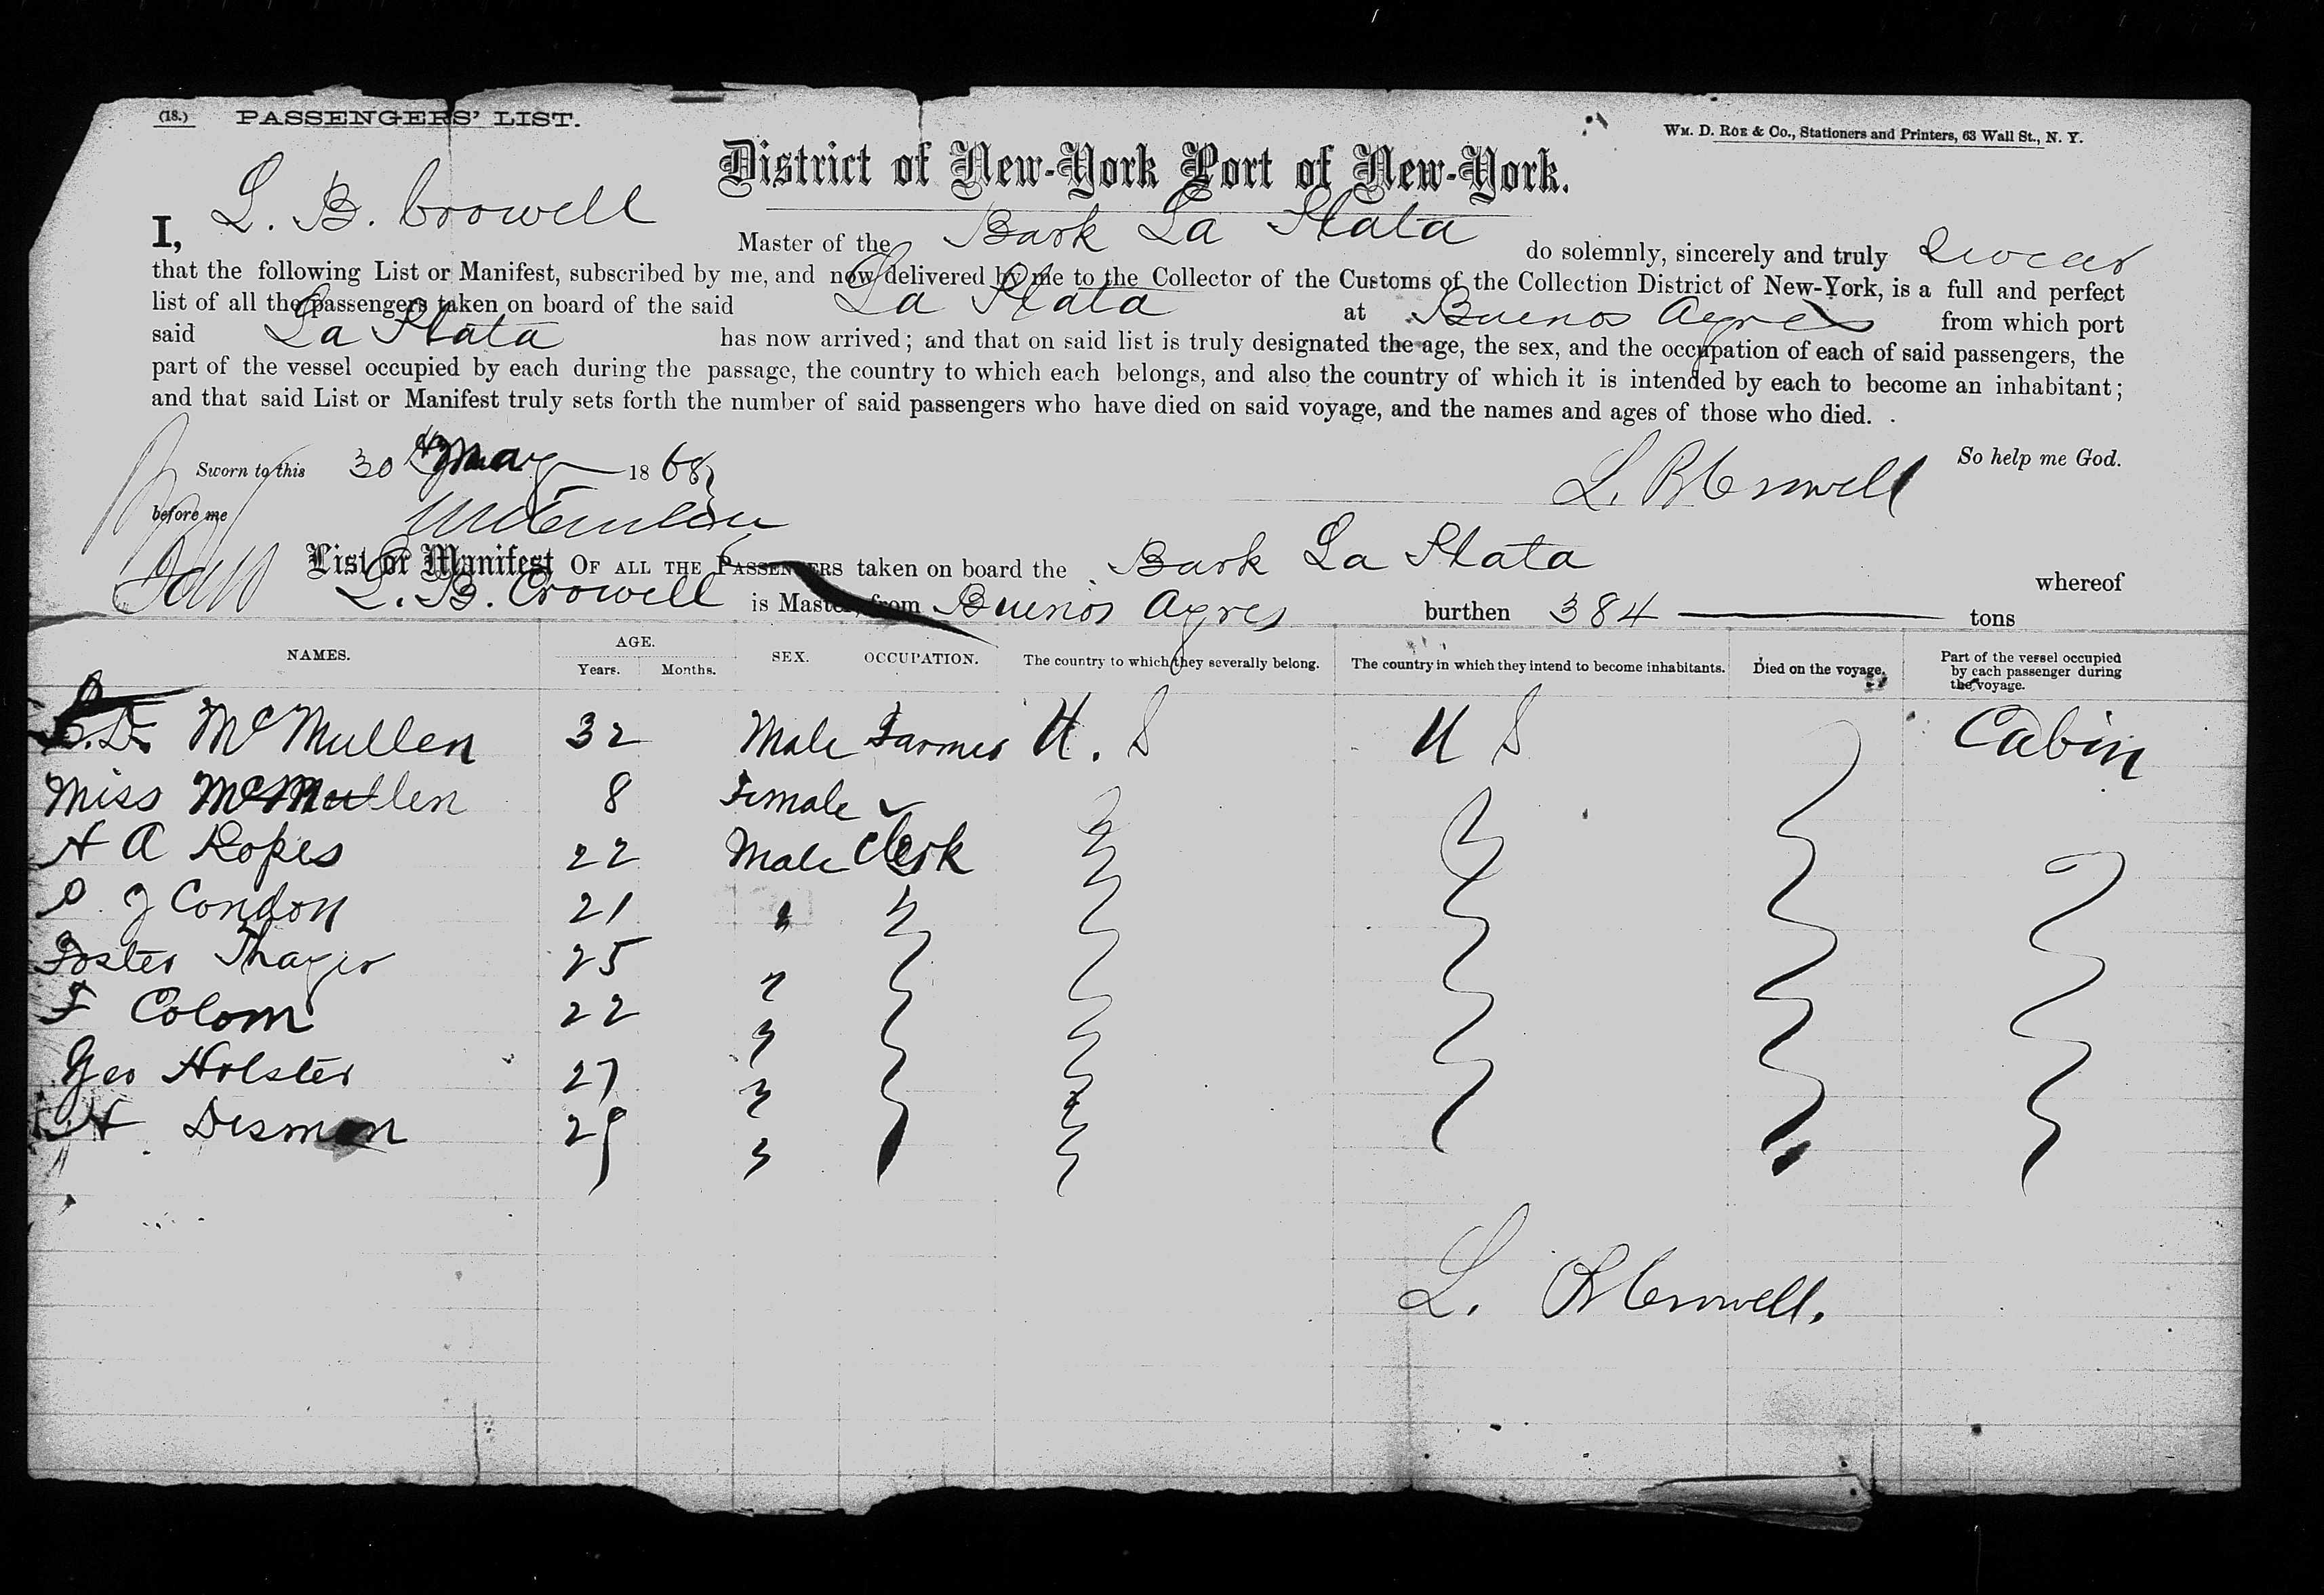 (18.) PASSENGERS' LIST.
WM. D. ROE & Co., Stationers and Printers, 63 Wall St., N. Y.
District of New-York Port of New-York.
I, L. B. Crowell Master of the Bark La Plata do solemnly, sincerely and truly swear
that the following List or Manifest, subscribed by me, and now delivered by me to the Collector of the Customs of the Collection District of New-York, is a full and perfect
list of all the passengers taken on board of the said La Plata at Buenos Ayres from which port
said La Plata has now arrived; and that on said list is truly designated the age, the sex, and the occupation of each of said passengers, the
part of the vessel occupied by each during the passage, the country to which each belongs, and also the country of which it is intended by each to become an inhabitant;
and that said List or Manifest truly sets forth the number of said passengers who have died on said voyage, and the names and ages of those who died.
So help me God.
Sworn to this 30 May 1868
L. B Crowell
before me
List or Manifest OF ALL THE PASSENGERS taken on board the Bark La Plata whereof
L. B. Crowell is Master, from Buenos Ayres burthen 384 tons
NAMES. AGE. Years. Months. SEX. OCCUPATION. The country to which they severally belong. The country in which they intend to become inhabitants. Died on the voyage. Part of the vessel occupied by each passenger during the voyage.
McMullen 32 Male Farmer U. S U S Cabin
Miss McMullen 8 Female
H A Ropes 22 Male Clerk
J Condon 21 "
Foster Thayer 25 "
F Colom 22 "
Geo Holster 27 "
H Desmon 29 "
L. B Crowell.